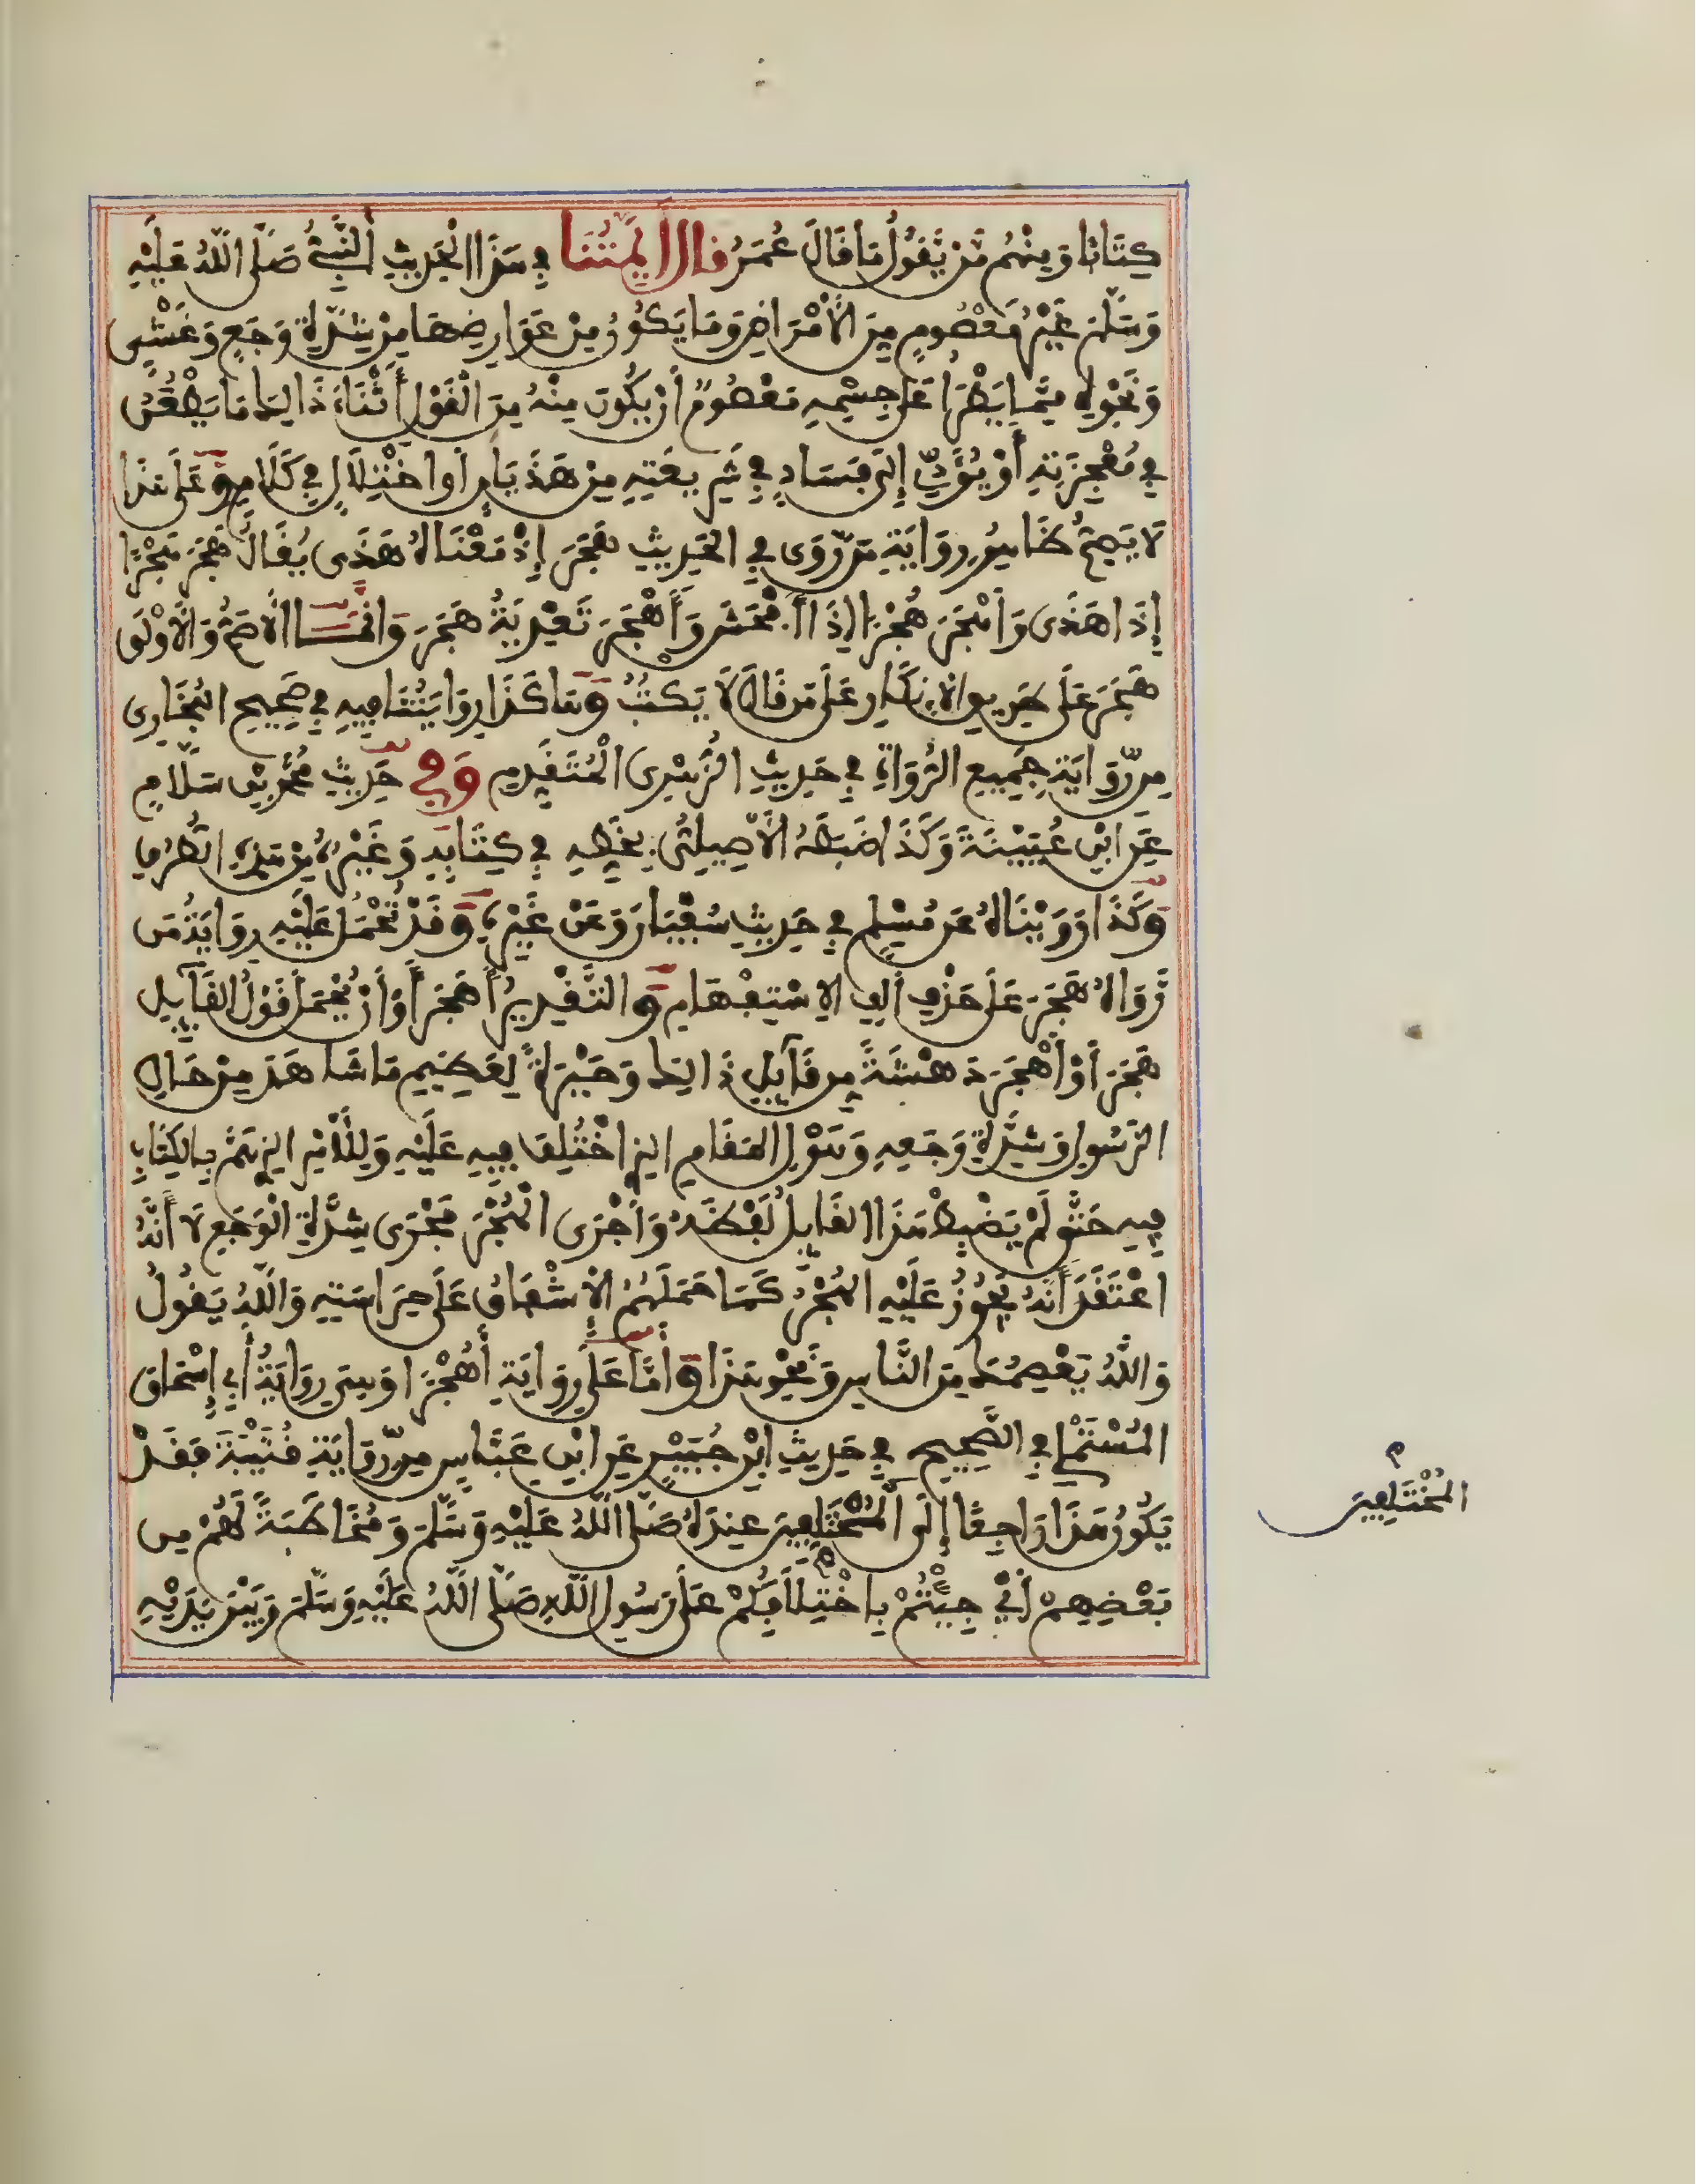 كِتَابًا وَمِنْهُم مَّنْ يَّقُولُ مَا قَالَ عُمَرُ قال أيمَّتُنَا فِي هَذَا الْحَدِيثِ النَّبِيُّ صَلَّى اللَّهُ عَلَيْهِ
وَسَلَّمَ غَيْرُ مَعْصُومٍ مِنَ الْأَمْرَاضِ وَمَا يَكُونُ مِنْ عَوَارِضِهَا مِنْ شِدَّةِ وَجَعٍ وَغَشْيٍ
وَنَحْوِهِ مِمَّا يَطْرَأُ عَلَى جِسْمِهِ مَعْصُومٌ أَنْ يَكُونَ مِنْهُ مِنَ الْقَوْلِ أَثْنَاءَ ذَالِكَ مَا يَطْعُنُ
فِي مُعْجِزَتِهِ أَوْ يُؤَدِّي إِلَى فَسَادٍ فِي شَرِيعَتِهِ مِنْ هَذَيَانٍ أَوِ اخْتِلَالٍ فِي كَلَامٍ وَعَلَى هَذَا
لَا يَصِحُّ ظَاهِرُ رِوَايَةِ مَن رَّوَى فِي الْحَدِيثِ هَجَرَ إِذْ مَعْنَاهُ هَذَى يُقَالُ هَجَرَ هَجْرًا
إِذَا هَذَى وَأَهْجَرَ هُجْرًا إِذَا أَفْحَشَ وَأَهْجَرَ تَعْدِيَةُ هَجَرَ وَإِنَّمَا الْأَصَحُّ وَالْأَوْلَى
هَجَرَ عَلَى طَرِيقِ الْإِنْكَارِ عَلَى مَن قَالَ لَا يَكْتُبُ وَهَاكَذَا رِوَايَتُنَا فِيهِ فِي صَحِيحِ الْبُخَارِي
مِن رِّوَايَةِ جَمِيعِ الرُّوَاةِ فِي حَدِيثِ الزُّهْرِي الْمُتَقَدِّمِ وَفِي حَدِيثِ مُحَمَّدِ بْنِ سَلَّامٍ
عَنِ ابْنِ عُيَيْنَةَ وَكَذَا ضَبَطَهُ الْأَصِيلِيُّ بِخَطِّهِ فِي كِتَابِهِ وَغَيْرُهُ مِنْ هَذِهِ الطُّرُقِ
وَكَذَا رَوَيْنَاهُ عَن مُسْلِمٍ فِي حَدِيثِ سُفْيَانَ وَعَنْ غَيْرِهِ وَقَدْ تُحْمَلُ عَلَيْهِ رِوَايَةُ مَن
رَّوَاهُ هَجَرَ عَلَى حَذْفِ أَلِفِ الِاسْتِفْهَامِ وَالتَّقْدِيرُ أَهَجَرَ أَوْ أَنْ يُحْمَلَ قَوْلُ الْقَائِلِ
هَجَرَ أَوْ أَهْجَرَ دَهْشَةً مِن قَائِلِ ذَالِكَ وَحَيْرَةً لِعَظِيمِ مَا شَاهَدَ مِنْ حَالِ
الرَّسُولِ وَشِدَّةِ وَجَعِهِ وَهَوْلِ الْمَقَامِ الذِي اخْتُلِفَ فِيهِ عَلَيْهِ وَلِلْأَمْرِ الذِي هَمَّ بِالْكِتَابِ
فِيهِ حَتَّى لَمْ يَضْبِطْ هَذَا الْقَائِلُ لَفْظَهُ وَأَجْرَى الْهُجْرَ مَجْرَى شِدَّةِ الْوَجَعِ لَا أَنَّهُ
اعْتَقَدَ أَنَّهُ يَجُوزُ عَلَيْهِ الْهُجْرُ كَمَا حَمَلَهُمُ الْإِشْفَاقُ عَلَى حِرَاسَتِهِ وَاللَّهُ يَقُولُ
وَاللَّهُ يَعْصِمُكَ مِنَ النَّاسِ وَنَحْوِ هَذَا وَأَمَّا عَلَى رِوَايَةِ أَهُجْرًا وَهِيَ رِوَايَةُ أَبِي إِسْحَاقَ
الْمُسْتَمْلِي فِي الصَّحِيحِ فِي حَدِيثِ ابْنِ جُبَيْرٍ عَنِ ابْنِ عَبَّاسٍ مِن رِّوَايَةِ قُتَيْبَةَ فَقَدْ
يَكُونُ هَذَا رَاجِعًا إِلَى الْمُخْتَلِفِينَ عِندَهُ صَلَّى اللَّهُ عَلَيْهِ وَسَلَّمَ وَمُخَاطَبَةً لَهُمْ مِن
بَعْضِهِمْ أَيْ جِئْتُمْ بِاخْتِلَافِكُمْ عَلَى رَسُولِ اللَّهِ صَلَّى اللَّهُ عَلَيْهِ وَسَلَّمَ وَبَيْنَ يَدَيْهِ
م
الْمُخْتَلِفِينَ